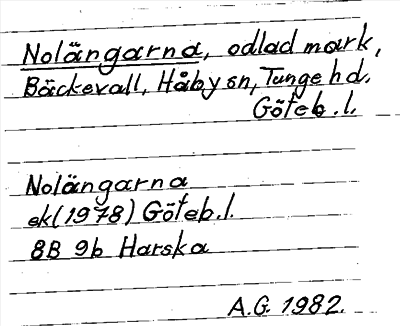 Nolängarna, odlad mark,
Bäckevall, Håby sn, Tunge hd.
Göteb.l.
Nolängarna
ek(1978) Göteb.l.
8B 9b Harska
A.G. 1982.